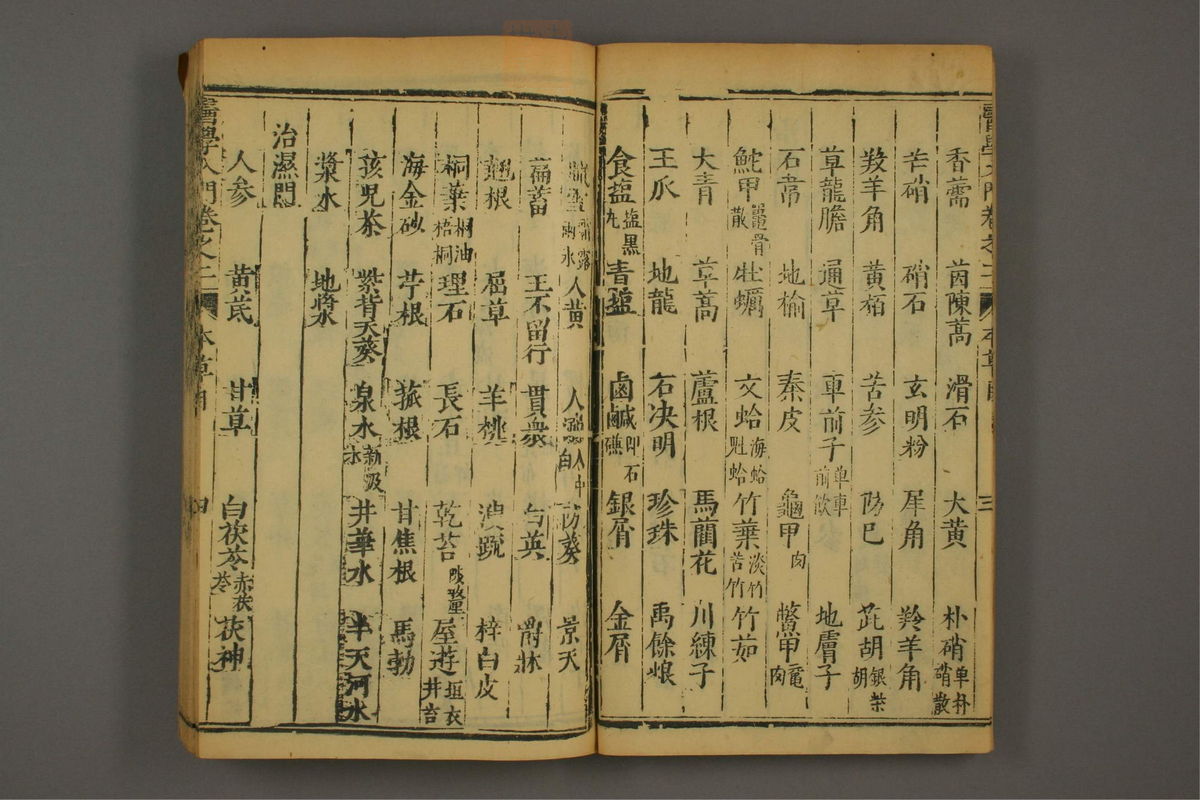 醫學入門卷之二 本草目 三
香薷 茵陳蒿 滑石 大黃 朴硝 单朴硝散
芒硝 硝石 玄明粉 犀角 羚羊角
羖羊角 黃栢 苦参 防已 茈胡 銀柴胡
草龍膽 通草 車前子 单車前飲 地膚子
石膏 地榆 秦皮 龜甲 肉 鱉甲 黿肉
鮀甲 鼉骨散 牡蠣 文蛤 海蛤魁蛤 竹葉 淡竹苦竹 竹茹
大青 草蒿 蘆根 馬藺花 川練子
王瓜 地龍 石决明 珍珠 禹餘粮
食盐 盐黑丸 青盐 鹵鹹 即石礆 銀屑 金屑
臘雪 霜露氷 人黃 人溺 人中白 防葵 景天
萹蓄 王不留行 貫衆 白英 爵牀
翹根 屈草 羊桃 溲疏 梓白皮
桐葉 桐油梧桐 理石 長石 乾苔 陟釐 屋遊 垣衣井苔
海金砂 苧根 菰根 甘焦根 馬勃
孩兒茶 紫背天葵 泉水 新汲水 井華水 半天河水
漿水 地漿水
治濕門
人参 黃芪 甘草 白茯苓 赤茯苓 茯神
醫學入門卷之二 本草目 四